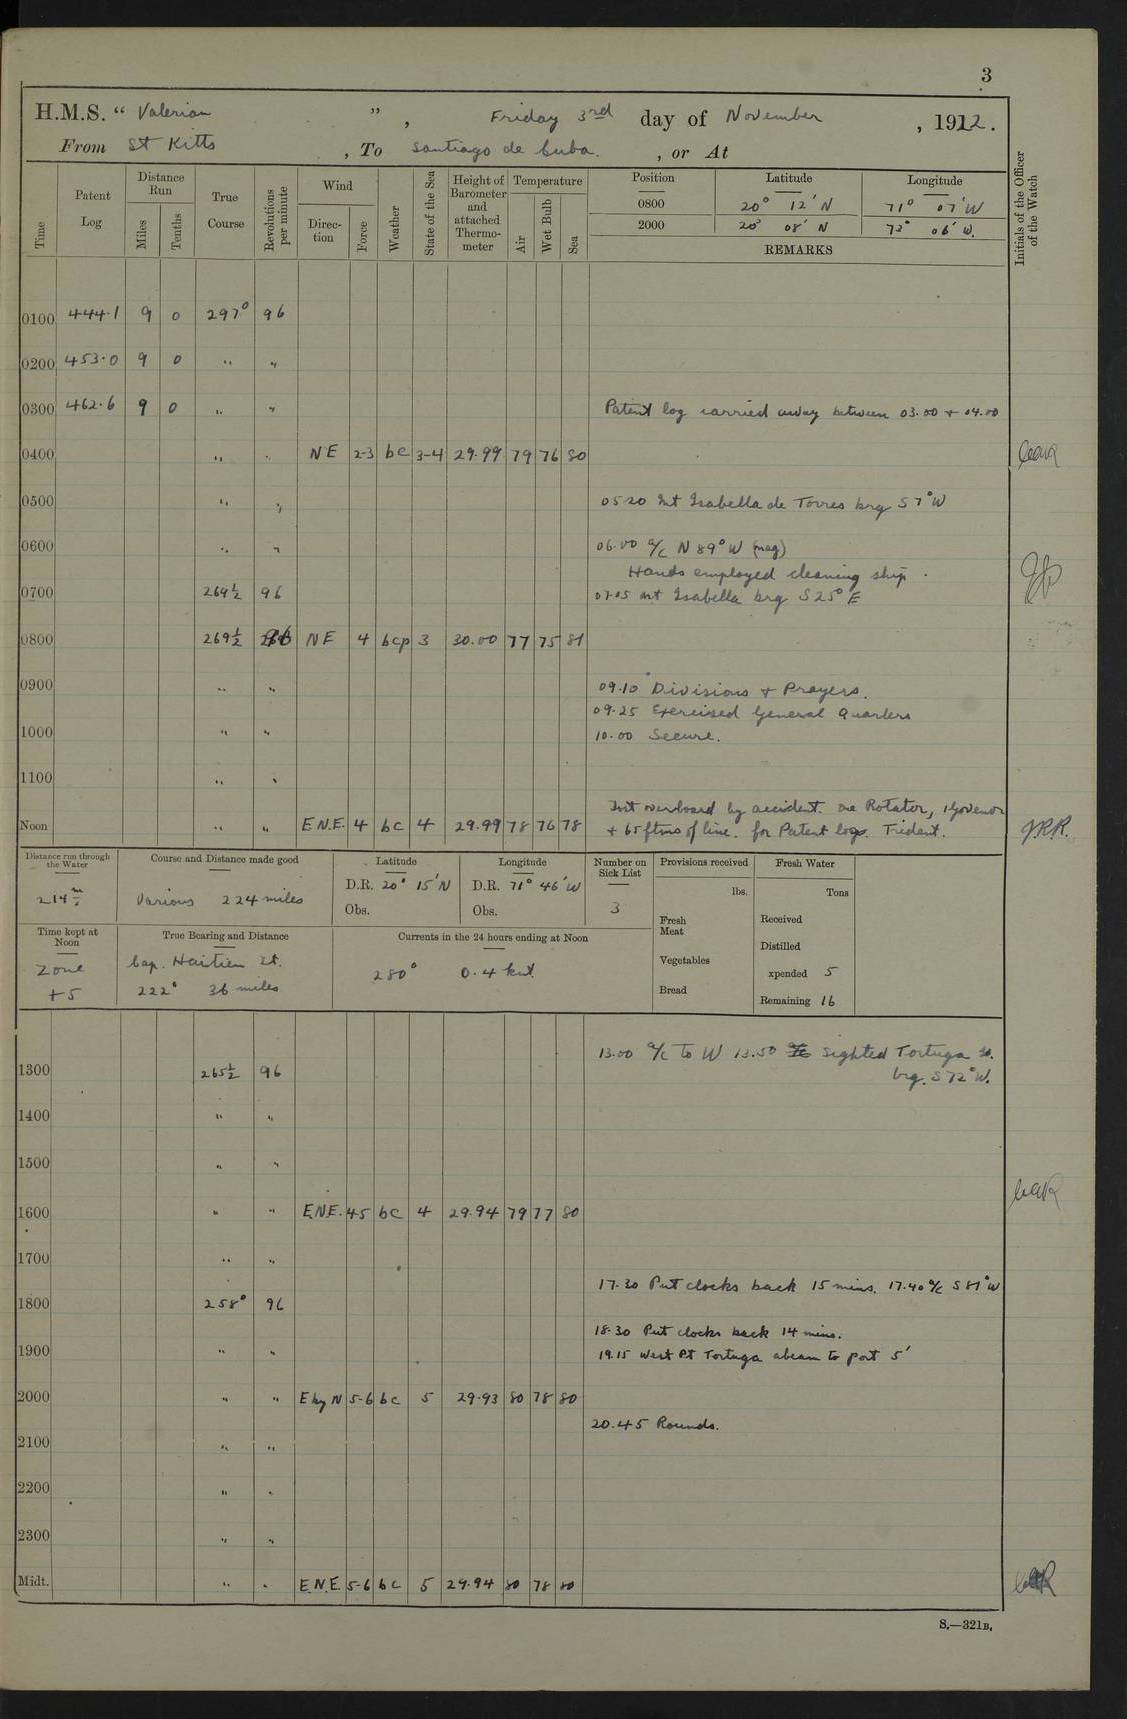 3
H.M.S. “ Valerian ”, Friday 3rd day of November, 1922.
From St Kitts, To Santiago de Cuba., or At
Time
Patent Log
Distance Run
Miles
Tenths
True Course
Revolutions per minute
Wind
Direction
Force
Weather
State of the Sea
Height of Barometer and attached Thermometer
Temperature
Air
Wet Bulb
Sea
Position Latitude Longitude
0800 20° 12' N 71° 07' W
2000 20° 08' N 72° 06' W.
REMARKS
Initials of the Officer of the Watch
0100 444.1 9 0 297° 96
0200 453.0 9 0 " "
0300 462.6 9 0 " " Patent log carried away between 03.00 + 04.00
0400 " " NE 2-3 bc 3-4 29.99 79 76 80
0500 " " 0520 Mt Isabella de Torres brg S 7° W
0600 " " 06.00 a/c N 89° W (mag)
Hands employed cleaning ship.
0700 269½ 96 07.05 Mt Isabella brg S 25° E
0800 269½ 96 NE 4 bcp 3 30.00 77 75 81
0900 " " 09.10 Divisions + Prayers.
09.25 Exercised General Quarters
1000 " " 10.00 Secure.
1100 " "
Lost overboard by accident. one Rotator, 1 Govenor
Noon " " E.N.E. 4 bc 4 29.99 78 76 78 + 65 ftms of line. for Patent logs. Trident. J.R.R.
Distance run through the Water
214 m
Course and Distance made good
Various 224 miles
Latitude
D.R. 20° 15' N
Obs.
Longitude
D.R. 71° 46' W
Obs.
Number on Sick List
3
Provisions received
lbs.
Fresh Meat
Vegetables
Bread
Fresh Water
Tons
Received
Distilled
xpended 5
Remaining 16
Time kept at Noon
Zone
+5
True Bearing and Distance
Cap. Haitien Lt.
222° 36 miles
Currents in the 24 hours ending at Noon
280° 0.4 knt
13.00 a/c to W 13.50 sighted Tortuga Id.
1300 265½ 96 brg. S 72° W.
1400 " "
1500 " "
1600 " " E.N.E. 4-5 bc 4 29.94 79 77 80
1700 " "
17.30 Put clocks back 15 mins. 17.40 a/c S 81° W
1800 258° 96
18.30 Put clocks back 14 mins.
1900 " " 19.15 West Pt Tortuga abeam to port 5'
2000 " " E by N 5-6 bc 5 29.93 80 78 80
20.45 Rounds.
2100 " "
2200 " "
2300 " "
Midt. " " E.N.E. 5-6 bc 5 29.94 80 78 80
S.—321B.